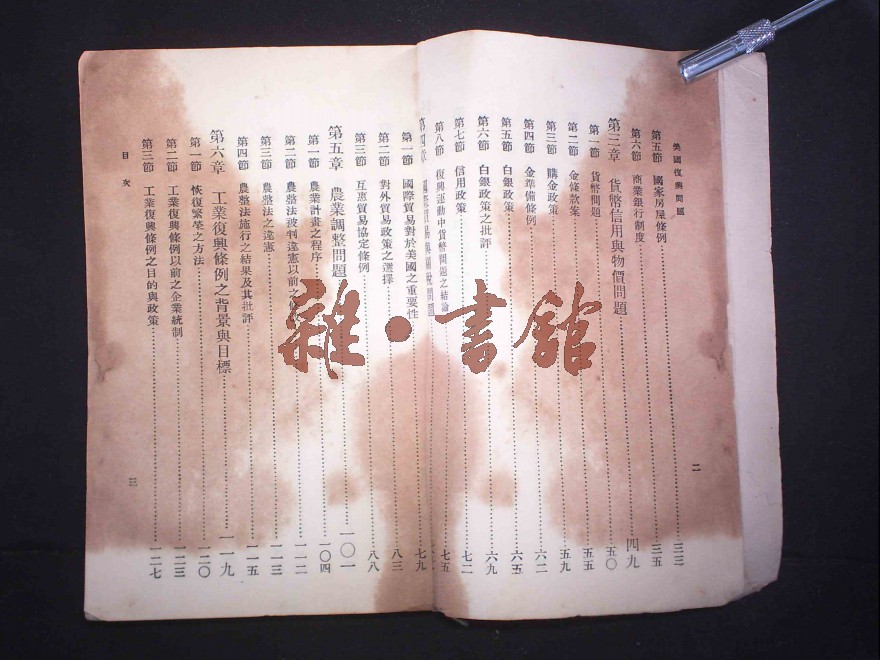 美國復興問題
二
第五節 國家房屋條例 三三
第六節 商業銀行制度 三五
第三章 貨幣信用與物價問題 四九
第一節 貨幣問題 五〇
第二節 金條款案 五五
第三節 購金政策 五九
第四節 金準備條例 六二
第五節 白銀政策 六五
第六節 白銀政策之批評 六九
第七節 信用政策 七二
第八節 復興運動中貨幣問題之結論 七五
第四章
第一節 國際貿易對於美國之重要性 七九
第二節 對外貿易政策之選擇 八三
第三節 互惠貿易協定條例 八八
第五章 農業調整問題 一〇一
第一節 農業計畫之程序 一〇四
第二節 農整法被判違憲以前之 一一二
第三節 農整法之違憲 一一三
第四節 農整法施行之結果及其批評 一一五
第六章 工業復興條例之背景與目標 一一九
第一節 恢復繁榮之方法 一二〇
第二節 工業復興條例以前之企業統制 一二三
第三節 工業復興條例之目的與政策 一二七
目次
三
雜·書館